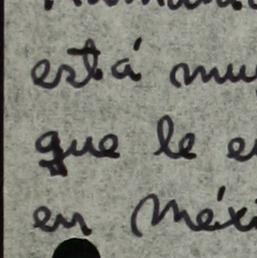 está mu
que le e
en Méxi